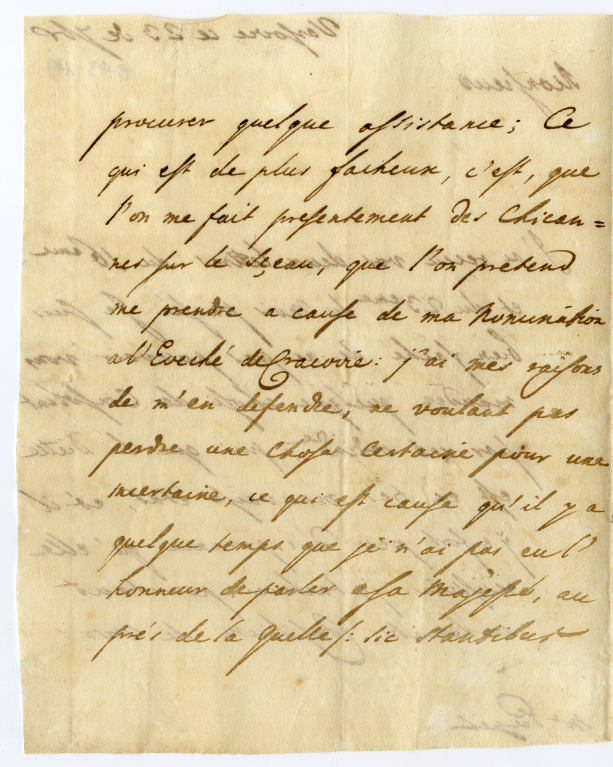 procurer quelque assistance; Ce
qui est de plus facheux, c'est, que
l'on me fait presentement des Chican=
nes sur le Sçeau, que l'on pretend
me prendre a cause de ma Nomination
a l'Eveché de Cracovie: j'ai mes raisons
de m'en defendre, ne voulant pas
perdre une Chose Certaine pour une
incertaine, ce qui est cause qu'il y a
quelque temps que je n'ai pas eu l'
honneur de parler a Sa Majesté, au
prés de la quelle /: sic stantibus